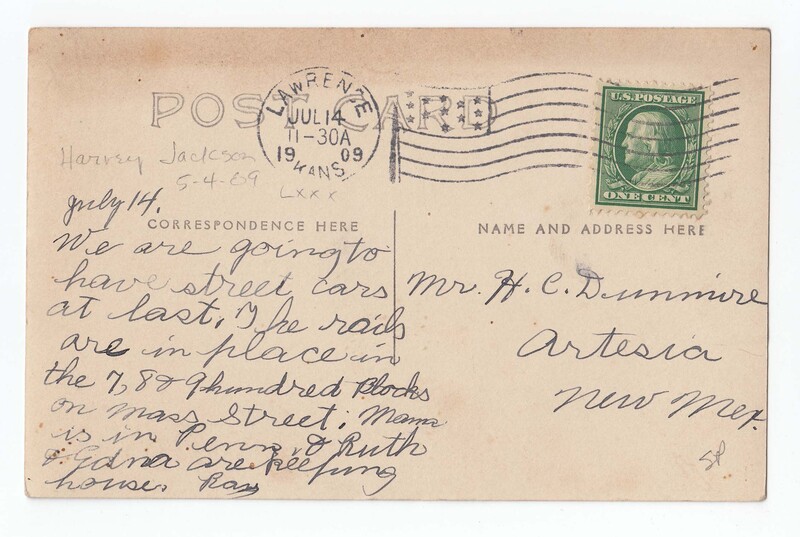 POST CARD
LAWRENCE
JUL 14
11-30A
1909
KANS.
U.S. POSTAGE
ONE CENT
Harvey Jackson
5-4-89
Lxxx
July 14.
CORRESPONDENCE HERE
NAME AND ADDRESS HERE
We are going to
have street cars
at last. The rails
are in place in
the 7, 8 & 9 hundred blocks
on Mass Street; Mama
is in Penn, & Ruth
& Edna are keeping
house. Ray
Mr. H. C. Dunmire
Artesia
New Mex.